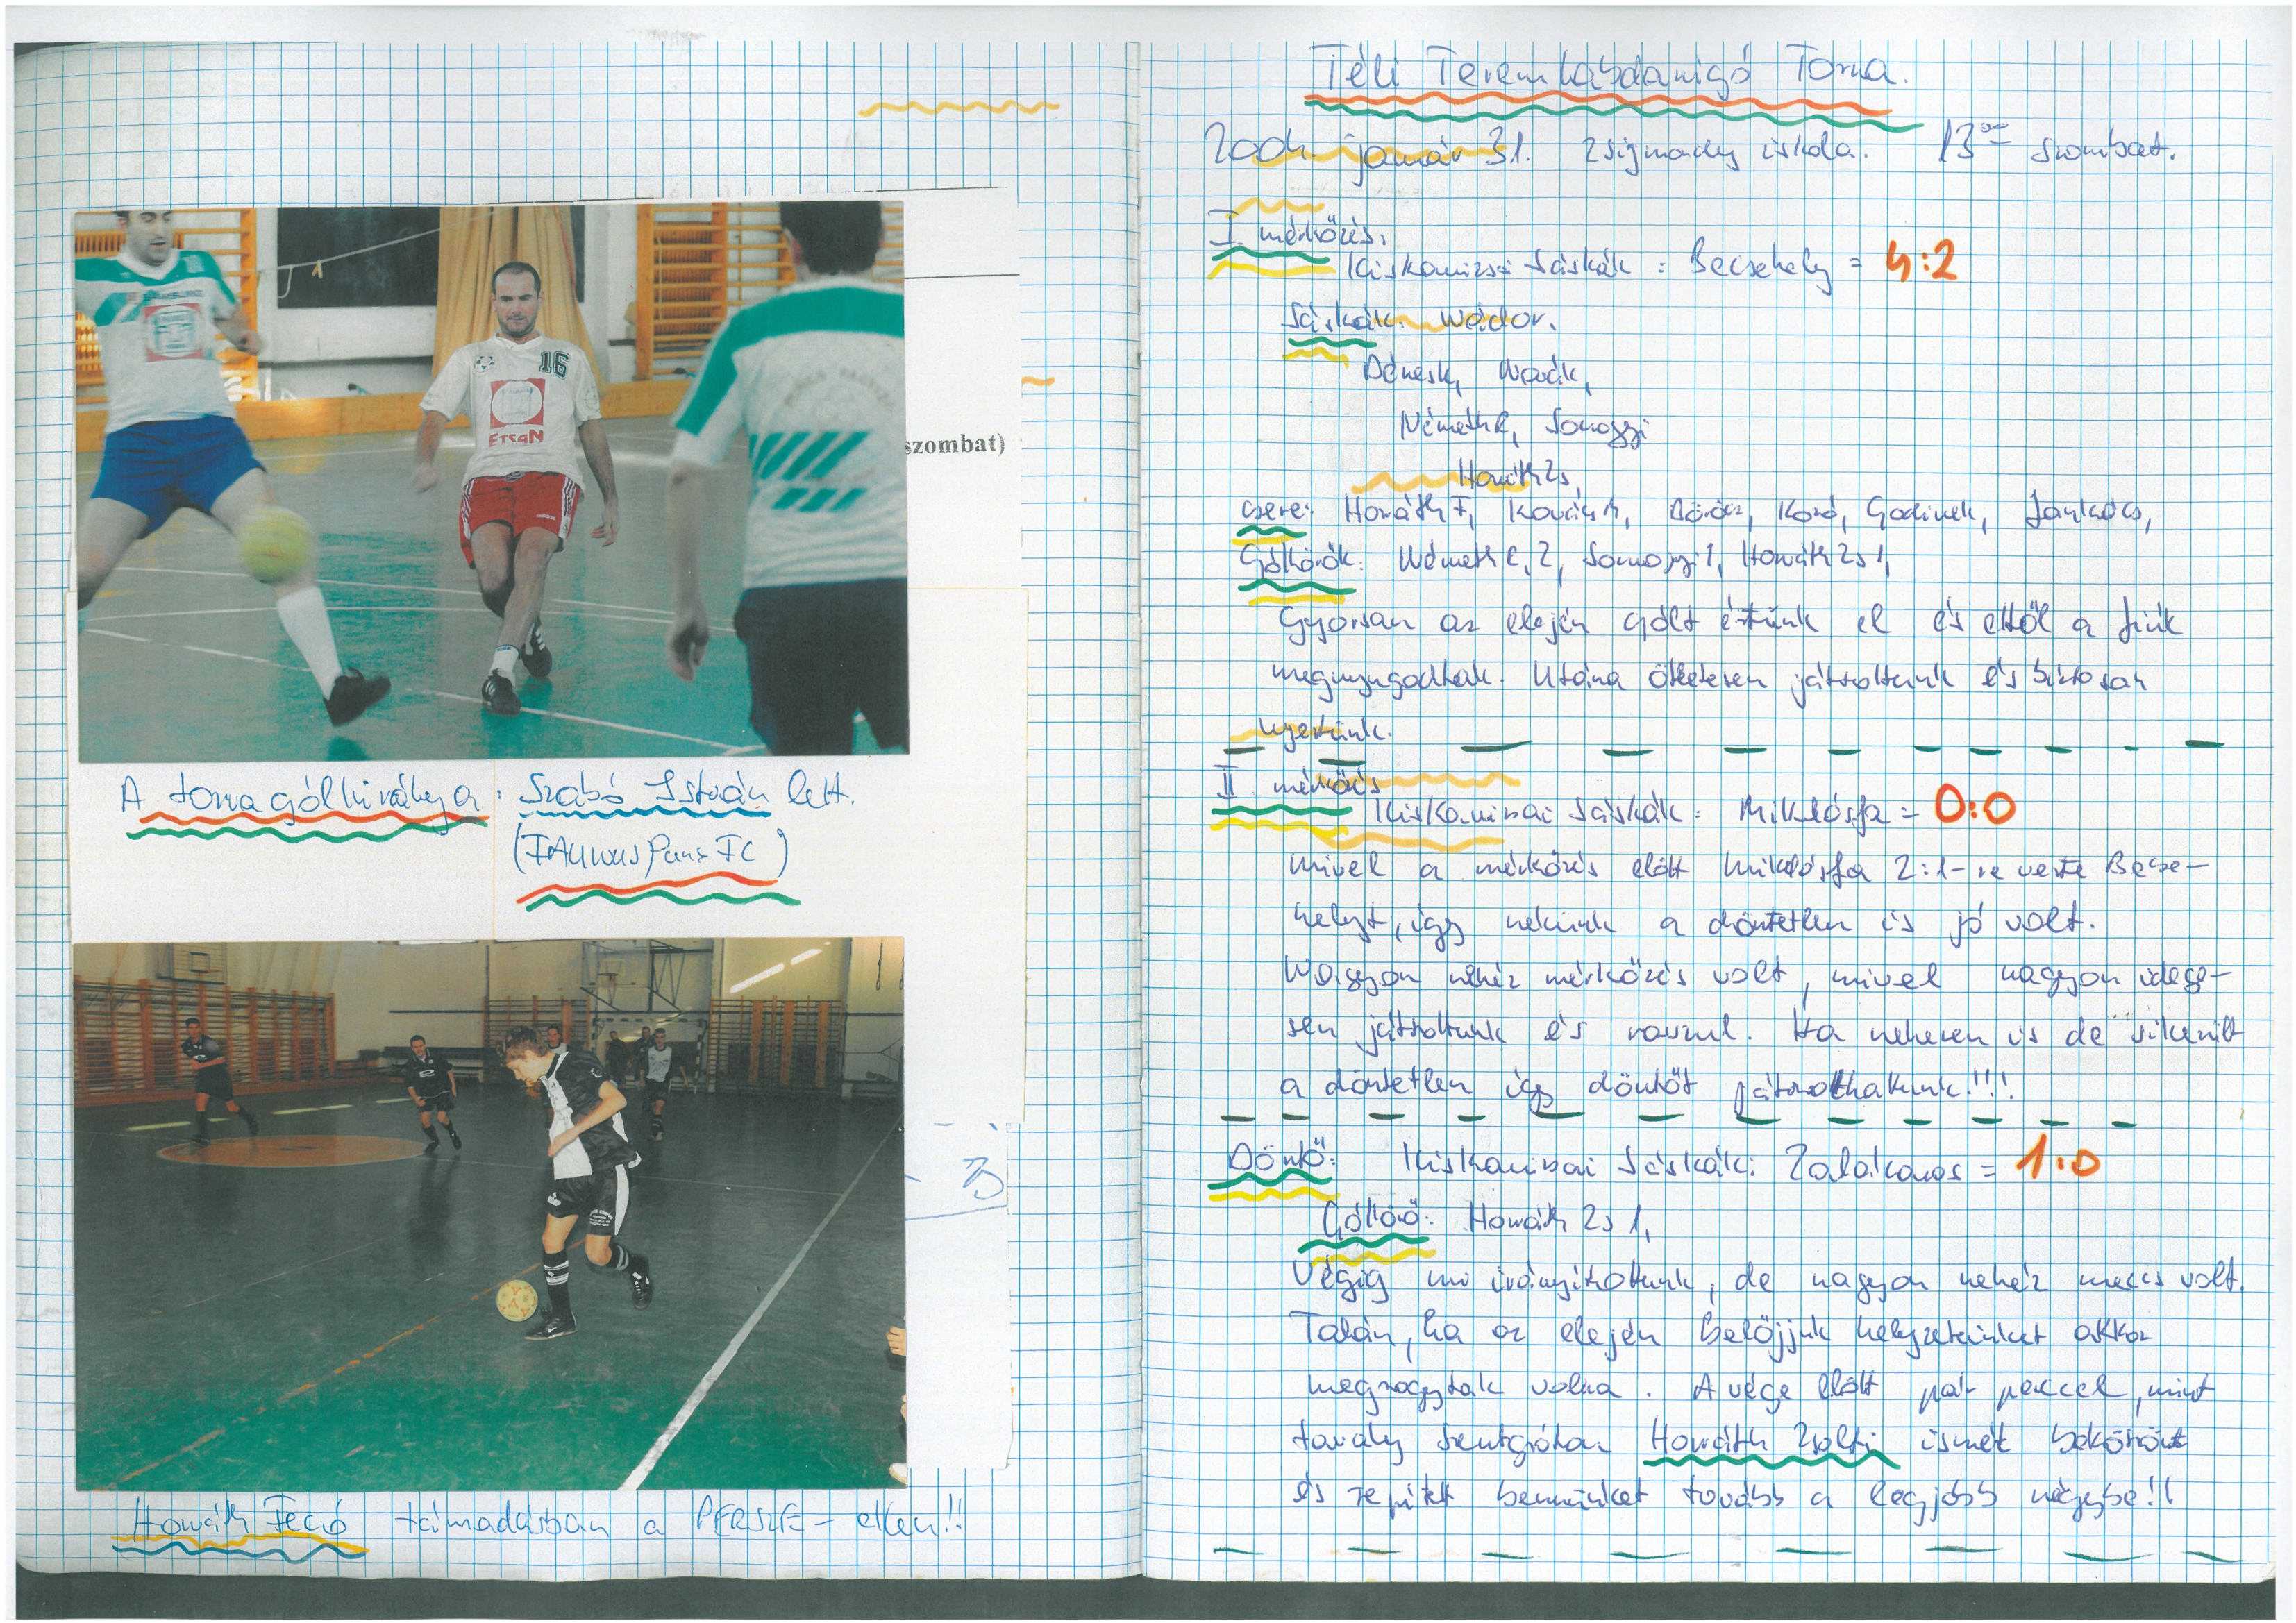 16
ETSAN
szombat)
A torna gólkirálya: Szabó István lett.
(FAunus Pans FC)
Horváth Fecó támadásban a PERSZE - ellen!!
Téli Teremlabdarúgó Torna.
2004. január 31. Zsigmondy iskola. 13⁰⁰ szombat.
I. mérkőzés.
Kiskanizsai Sáskák : Becsehely = 4:2
Sáskák: Nádor,
Dénesk, Novák,
Németh R, Somogyi
Horváth Zs,
csere: Horváth F, Kovács A, Böröcz, Kozó, Godinek, Jankócs,
Góllövők: Németh R, 2, Somogyi 1, Horváth Zs 1,
Gyorsan az elején gólt értünk el és ettől a fiúk
megnyugodtak. Utána ötletesen játszottunk és biztosan
nyertünk.
II. mérkőzés
Kiskanizsai Sáskák : Miklósfa = 0:0
Mivel a mérkőzés előtt Miklósfa 2:1-re verte Becse-
helyt, így nekünk a döntetlen is jó volt.
Nagyon nehéz mérkőzés volt, mivel nagyon idege-
sen játszottunk és rosszul. Ha nehezen is de sikerült
a döntetlen így döntőt játszhatunk!!!
Döntő: Kiskanizsai Sáskák : Zalakaros = 1:0
Góllövő: Horváth Zs 1,
Végig mi irányítottunk, de nagyon nehéz meccs volt.
Talán, ha az elején belőjjük helyzeteinket akkor
megzogytak volna. A vége előtt pár perccel, mint
tavaly Szentgróton Horváth Zsolti ismét bekötözött
és repített bennünket tovább a legjobb négybe!!